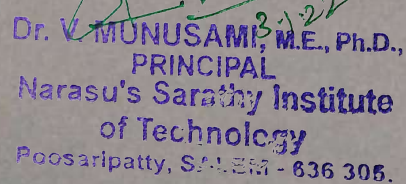 3.1.22
Dr. V. MUNUSAMI, M.E., Ph.D.,
PRINCIPAL
Narasu's Sarathy Institute
of Technology
Poosaripatty, SALEM - 636 305.